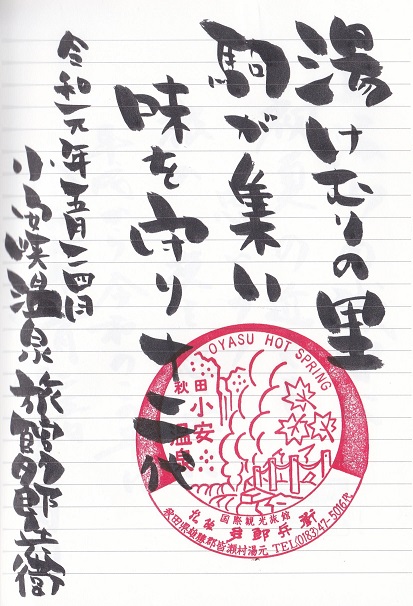 湯けむりの里
駒が集い
味を守り十二代
令和元年五月二四日
小安峡温泉 旅館多郎兵衛
OYASU HOT SPRING
秋田
小安
温泉
国際観光旅館
多郎兵衛
秋田県雄勝郡皆瀬村湯元 TEL(0183)47-5016代